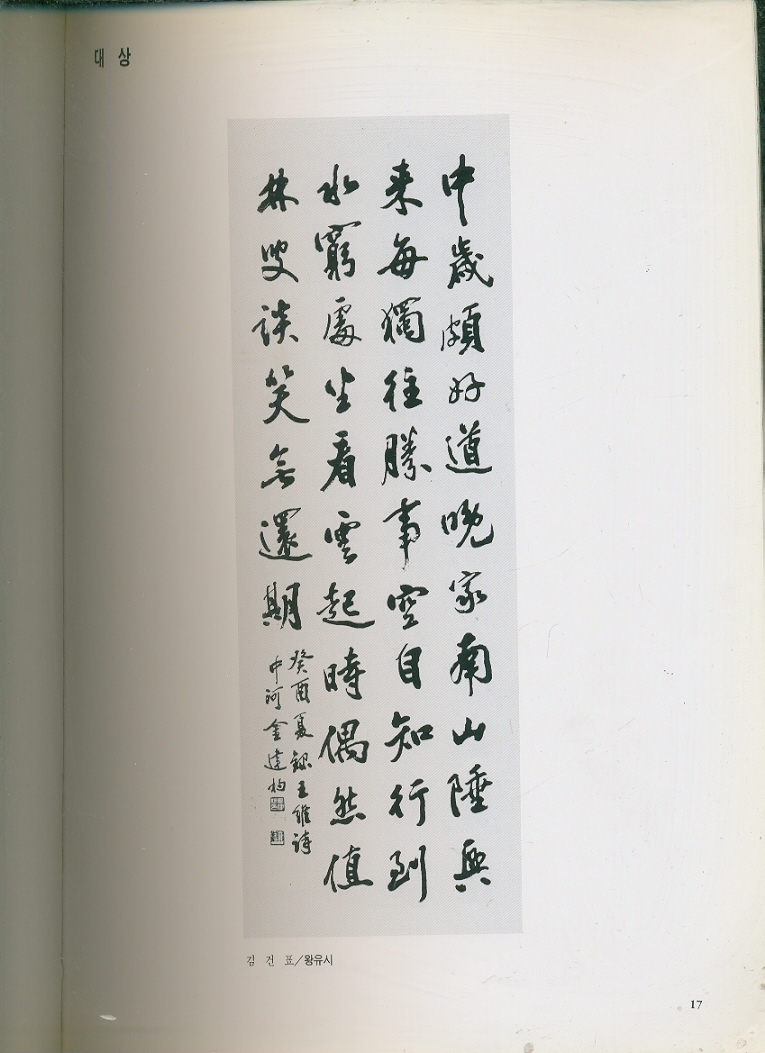 대 상
中歲頗好道晚家南山陲興
来每獨往勝事空自知行到
水窮處坐看雲起時偶然值
林叟談笑無還期
癸酉夏錄王維詩
中河金建杓
김 건 표/왕유시
17